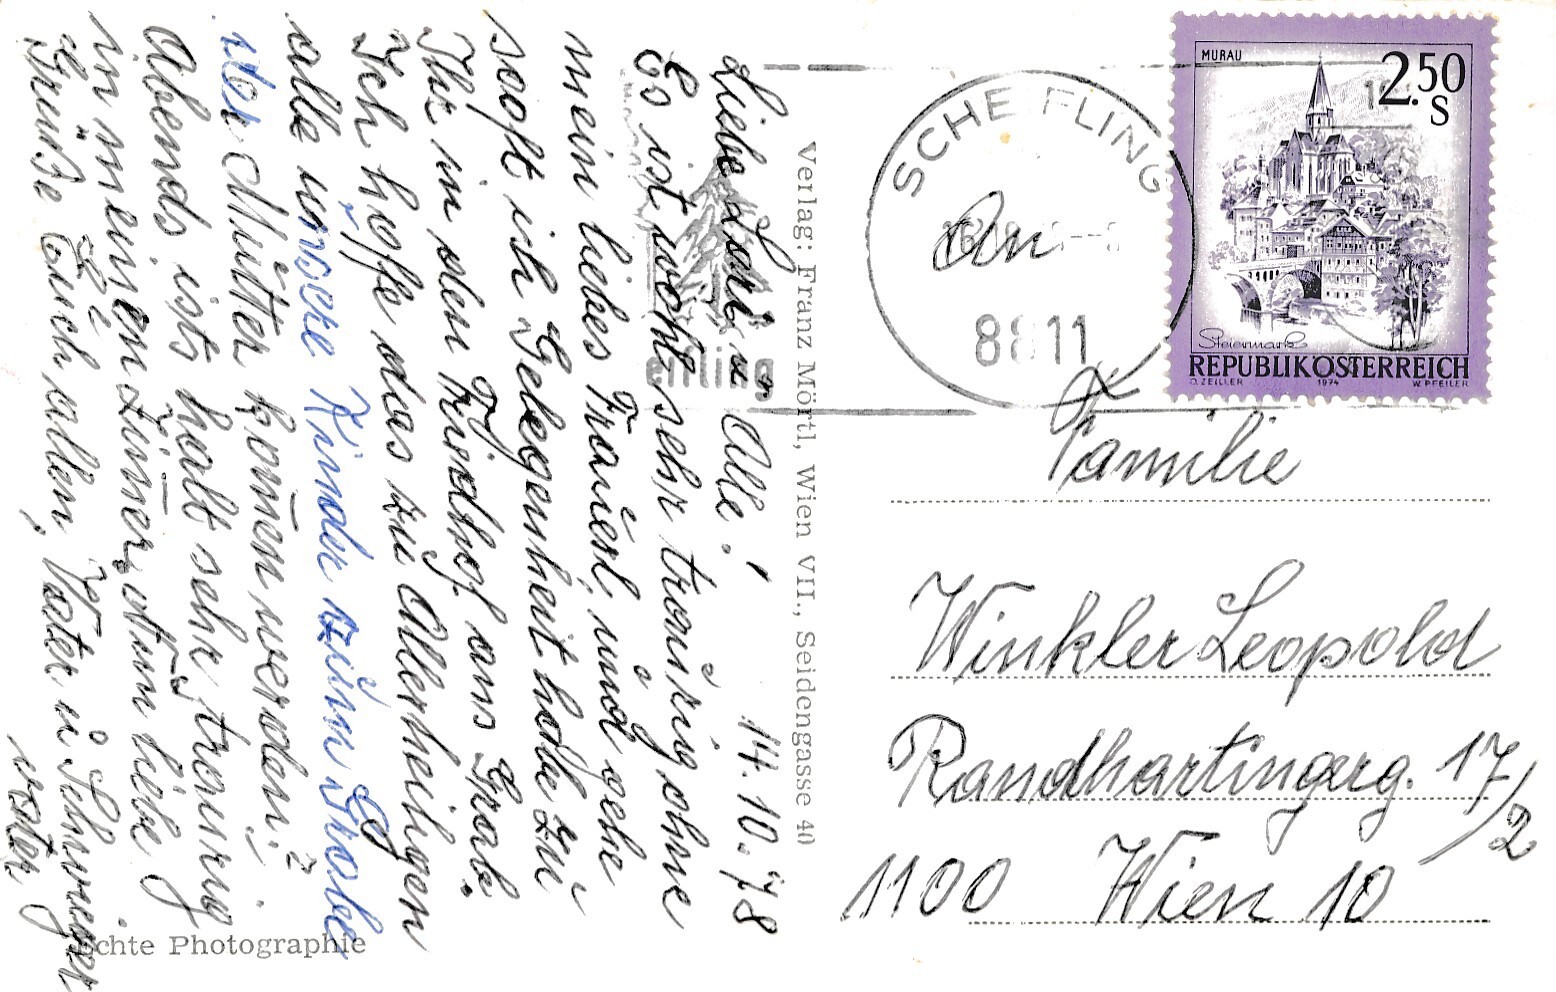 Liebe Lori u Alle! 14.10.78
Es ist wohl sehr traurig ohne
mein liebes Frauerl, und gehe
sooft ich Gelegenheit habe zu
Ihr in den Friedhof ans Grab.
Ich hoffe das zu Allerheiligen
alle unsere Kinder zum Grabe
der Mutter kom̄en werden!
Abends ists halt sehr traurig
in meinem Zim̄er. Nun liebe
Grüße Euch allen, Vater u Schwieger
vater
Verlag: Franz Mörtl, Wien VII., Seidengasse 40
Echte Photographie
SCHEIFLING
8811
MURAU
2.50
S
Steiermark
REPUBLIK ÖSTERREICH
O. ZEILLER 1974 W. PFEILER
An
Familie
Winkler Leopold
Randhartingerg. 17/2
1100 Wien 10